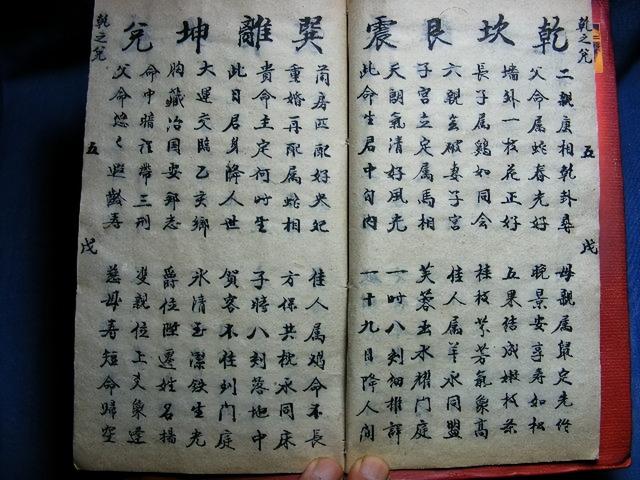 乾之兌 五 戊
乾 坎 艮 震
二親庚相乾卦尋 母親属鼠定先終
父命属蛇春光好 晚景安享寿如松
墙外一枝花正好 五果结成嫩枝条
長子属鷄如同会 桂枝芬芳氣象高
六親 破妻子宮 佳人属羊永同盟
子宮立定属馬相 芙蓉出水耀門庭
天朗氣清好風光 一时八刻細推詳
此命生居中旬内 一十九日降人间
巽 離 坤 兌
蘭房匹配好 妃 佳人属鸡命不長
重婚再配属蛇相 方保共枕永同床
貴命主定何时生 子时八刻落地中
此日君身降人世 賀客不住到門庭
大運交臨乙亥鄉 氷清玉潔鉄生光
胸藏治国 邦志 爵位陞遷姓名揚
命中暗註帶三刑 雙親位上爻象逢
父命悠々遐齡寿 慈母寿短命歸空
乾之兌 五 戊